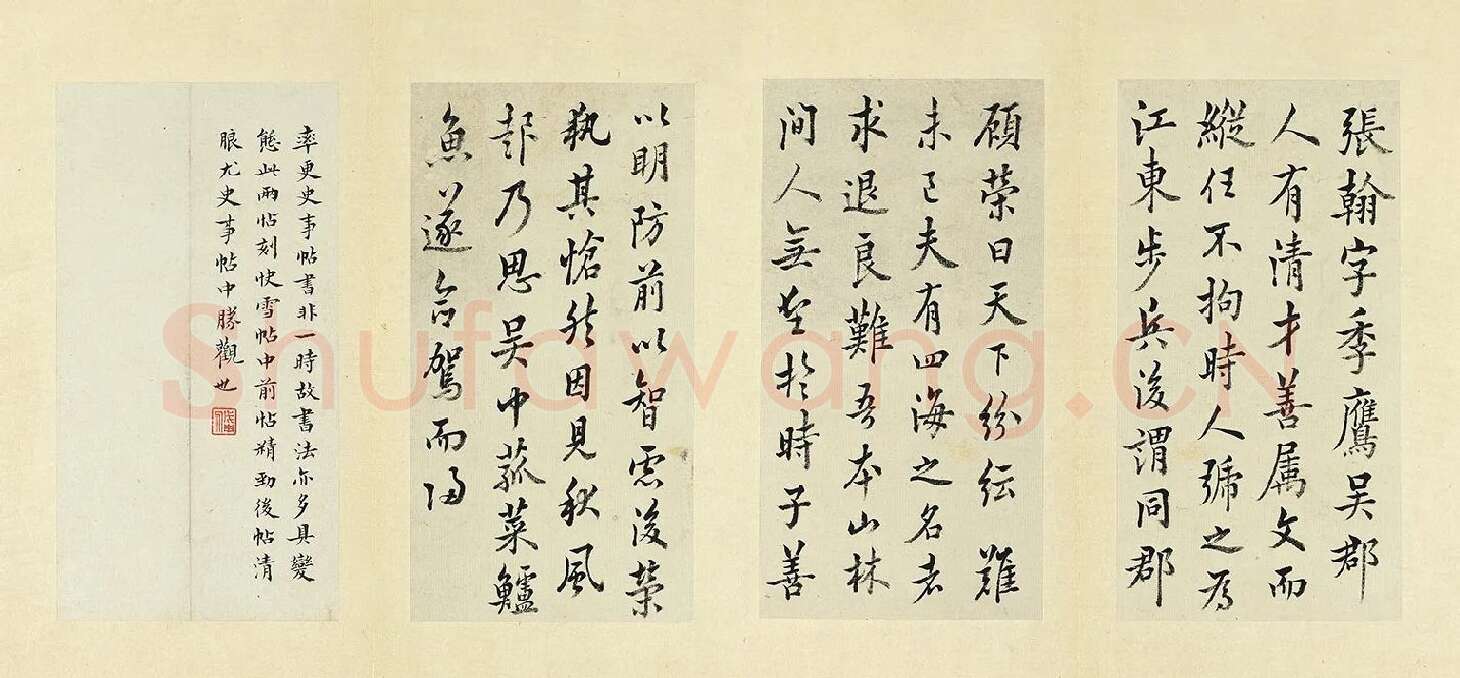 張翰字季鷹吴郡
人有清才善属文而
縱任不拘時人號之為
江東步兵後謂同郡
顾榮曰天下紛紜難
未已夫有四海之名者
求退良難吾本山林
间人無望於時子善
以明防前以智慮後榮
執其愴然因見秋風
起乃思吴中菰菜鱸
魚遂命駕而归
率更史事帖書非一時故書法亦多具變
態此兩帖刻快雪帖中前帖精勁後帖清
腴尤史事帖中勝觀也
Shufawang.CN